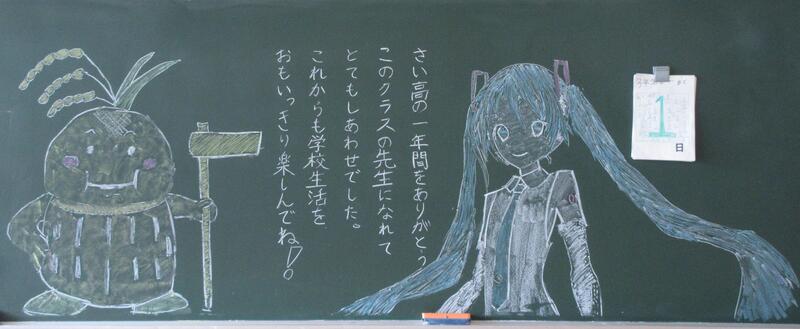 さい高の一年間をありがとう
このクラスの先生になれて
とてもしあわせでした。
これからも学校生活を
おもいっきり楽しんでね!!
1
日